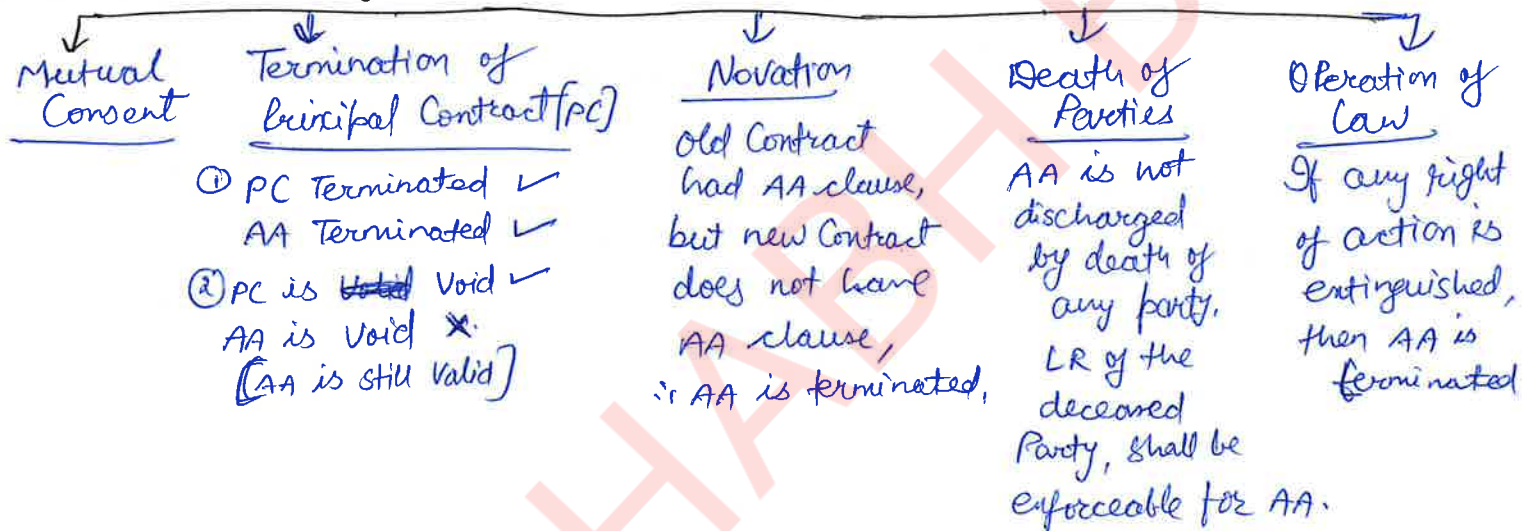 Mutual
Consent
Termination of
Principal Contract [PC]
① PC Terminated ✓
AA Terminated ✓
② PC is Void ✓
AA is Void ×.
[AA is still Valid]
Novation
old Contract
had AA clause,
but new Contract
does not have
AA clause,
∵ AA is terminated.
Death of
Parties
AA is not
discharged
by death of
any party.
LR of the
deceased
Party, shall be
enforceable for AA.
Operation of
Law
If any right
of action is
extinguished,
then AA is
terminated
HABH